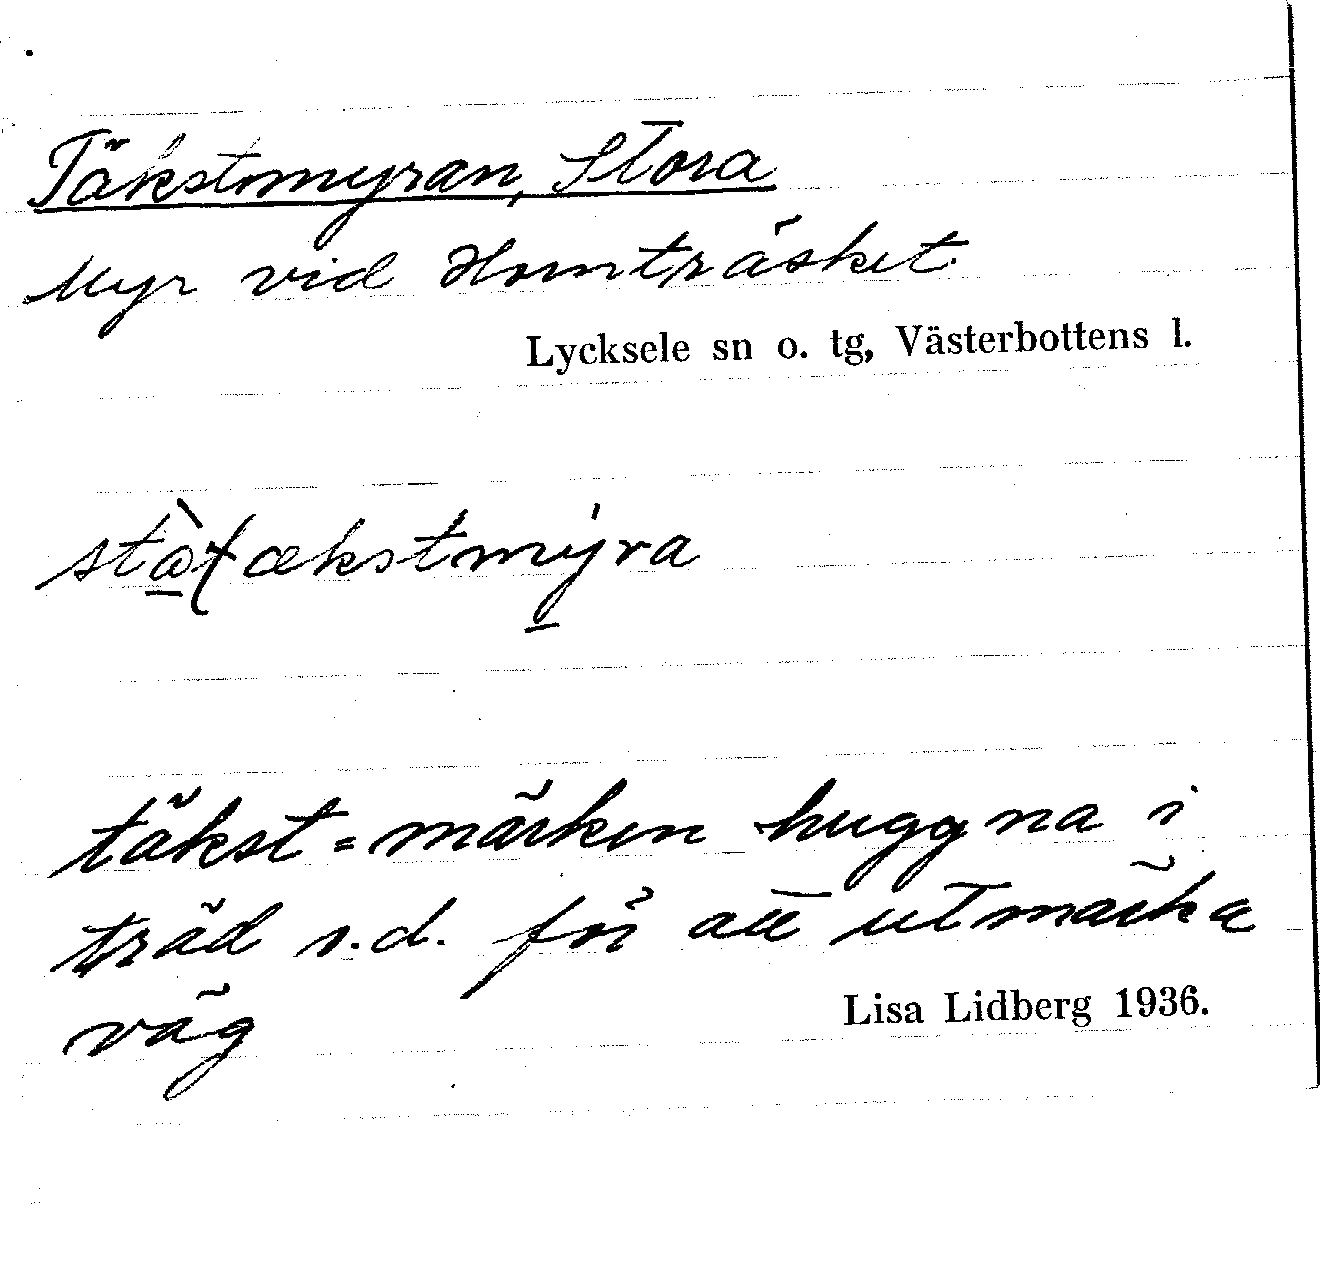 Täkstmyran, Stora
Myr vid Hornträsket
Lycksele sn o. tg, Västerbottens l.
täkst = märken huggna i
träd o.d. för att utmärka
väg
Lisa Lidberg 1936.